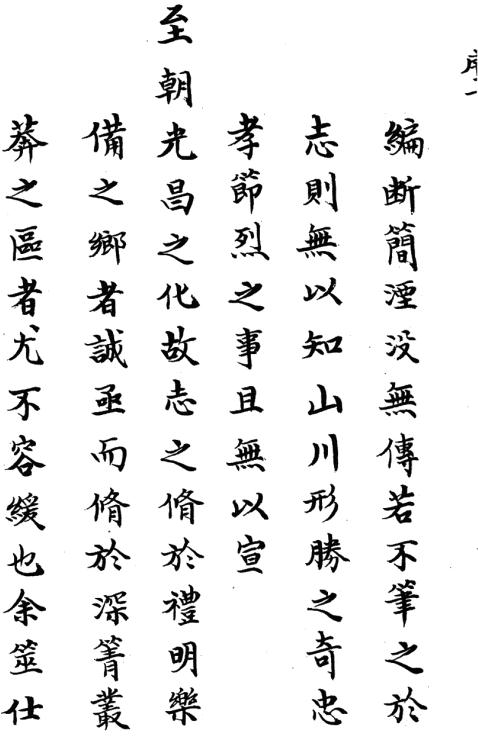 序一
編断簡湮没無傳若不筆之於
志則無以知山川形勝之奇忠
孝節烈之事且無以宣
至朝光昌之化故志之脩於禮明樂
備之鄉者誠亟而脩於深箐叢
莽之區者尤不容緩也余筮仕